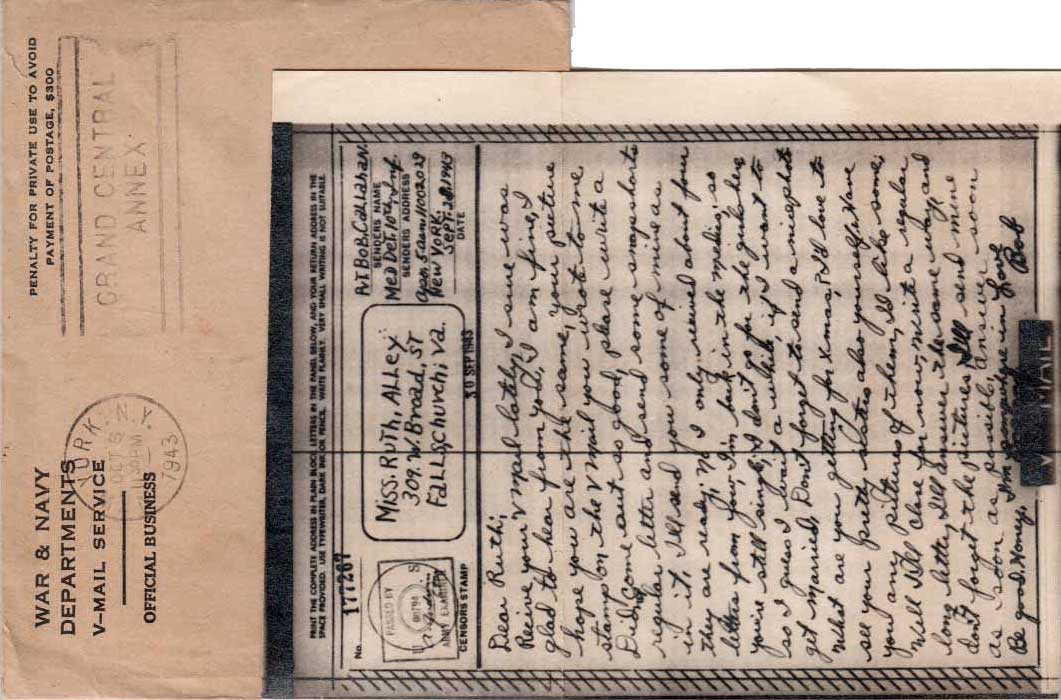 WAR & NAVY
DEPARTMENTS
V-MAIL SERVICE
OFFICIAL BUSINESS
PENALTY FOR PRIVATE USE TO AVOID
PAYMENT OF POSTAGE, $300
YORK, N.Y.
OCT 6
PM
1943
GRAND CENTRAL
ANNEX
PRINT THE COMPLETE ADDRESS IN PLAIN BLOCK LETTERS IN THE PANEL BELOW, AND YOUR RETURN ADDRESS IN THE
SPACE PROVIDED. USE TYPEWRITER, DARK INK OR PENCIL. WRITE PLAINLY. VERY SMALL WRITING IS NOT SUITABLE.
No.
PASSED BY
U S
ARMY EXAMINER
CENSORS STAMP
Miss. Ruth, Alley
309. W. Broad, ST
Falls, Church, Va.
30 SEP 1943
Pvt. Bob. Callahan.
SENDERS NAME
Med Det. 10th Inf
SENDERS ADDRESS
New York.
Sept. 28. 1943
DATE
Dear Ruth;
Receive your V mail lately, I sure was
glad to hear from you, I am fine, I
hope you are the same, your picture
stamp on the V mail you wrote to me
Didn't come out so good, please write a
regular letter and send some snapshorts
in it. I'll send you some of mine as
they are ready. No I only received about four
letters from you. I'm back in the medics, so
you're still single, I don't go for the guls here
so I guess I wait a while, if I want to
get married. Don't forget to send a micephote
What are you getting for xmas, I'd love to
see your pretty sisters also yourself, Have
you any pictures of them, I'd like some,
Well I'll close for now, write a regular
long letter, I'll answer the same way, and
don't forget the pictures, I'll send mine
as soon as possible, answer soon
Be good Honey. I'm somewhere in Love
Bob
V MAIL